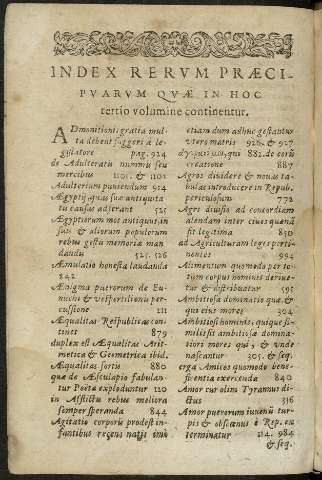 INDEX RERVM PRÆCI-
PVARVM QVÆ IN HOC
tertio volumine continentur.
ADmonitioni gratia mul-
ta debent suggeri à le-
gislatore pag. 924
de Adulteratis nummis seu
mercibus 1101. & 1103
Adulterium puniendum 924
Ægyptij quas suæ antiquita
tis causas adferant 525
Ægyptiorum mos antiquus in
suis & aliorum populorum
rebus gestis memoriæ man
dandis 525. 526
Æmulatio honesta laudanda
842
Ænigma puerorum de Eu-
nuchi & vespertilionis per-
cussione 111
Æqualitas Respublicas con-
tinet 879
duplex est Æqualitas Arit-
metica & Geometrica ibid.
Æqualitas sortis 880
quæ de Æsculapio fabulan-
tur Poëtæ exploduntur 120
in Afflictis rebus meliora
semper speranda 844
Agitatio corporis prodest in-
fantibus recens natis imò
etiam dum adhuc gestantur
vtero matris 926. & 927
qui 882. de eorũ
creatione 887
Agros diuidere & nouas ta-
bulas introducere in Repub.
periculosum 772
Agri diuisio ad concordiam
alendam inter ciues quenã
sit legitima 850
ad Agriculturam leges perti-
nentes 994
Alimentum quomodo per to-
tum corpus hominis deriue-
tur & distribuatur 595
Ambitiosa dominatio quæ &
qui eius mores 304
Ambitiosi hominis, quique si-
milis sit ambitiosæ domina-
tiori mores qui, & vnde
nascantur 305. & seq.
erga Amicos quomodo bene-
ficentia exercenda 840
Amor cur olim Tyrannus di-
ctus 316
Amor puerorum iuuenũ tur-
pis & obscœnus è Rep. ex
terminatur 114. 984
& seq.